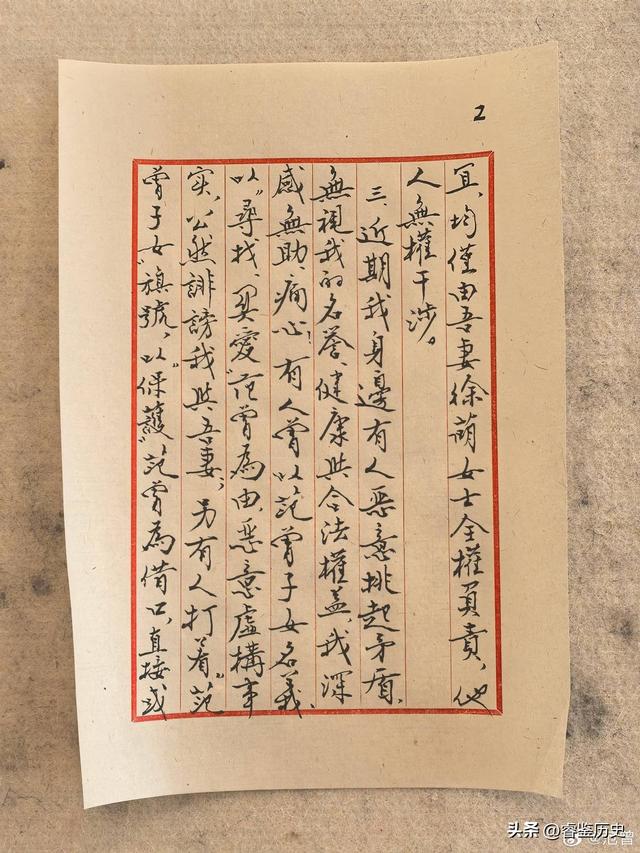 2
宜，均僅由吾妻徐萌女士全權負責，他
人無權干涉。
三、近期我身邊有人惡意挑起矛盾，
無視我的名譽、健康與合法權益，我深
感無助、痛心！有人曾以范曾子女名義，
以“尋找、关愛”范曾為由，惡意虛構事
实，公然誹謗我與吾妻；另有人打着“范
曾子女”旗號，以“保護”范曾為借口，直接或
头条 @睿鉴历史
@范曾